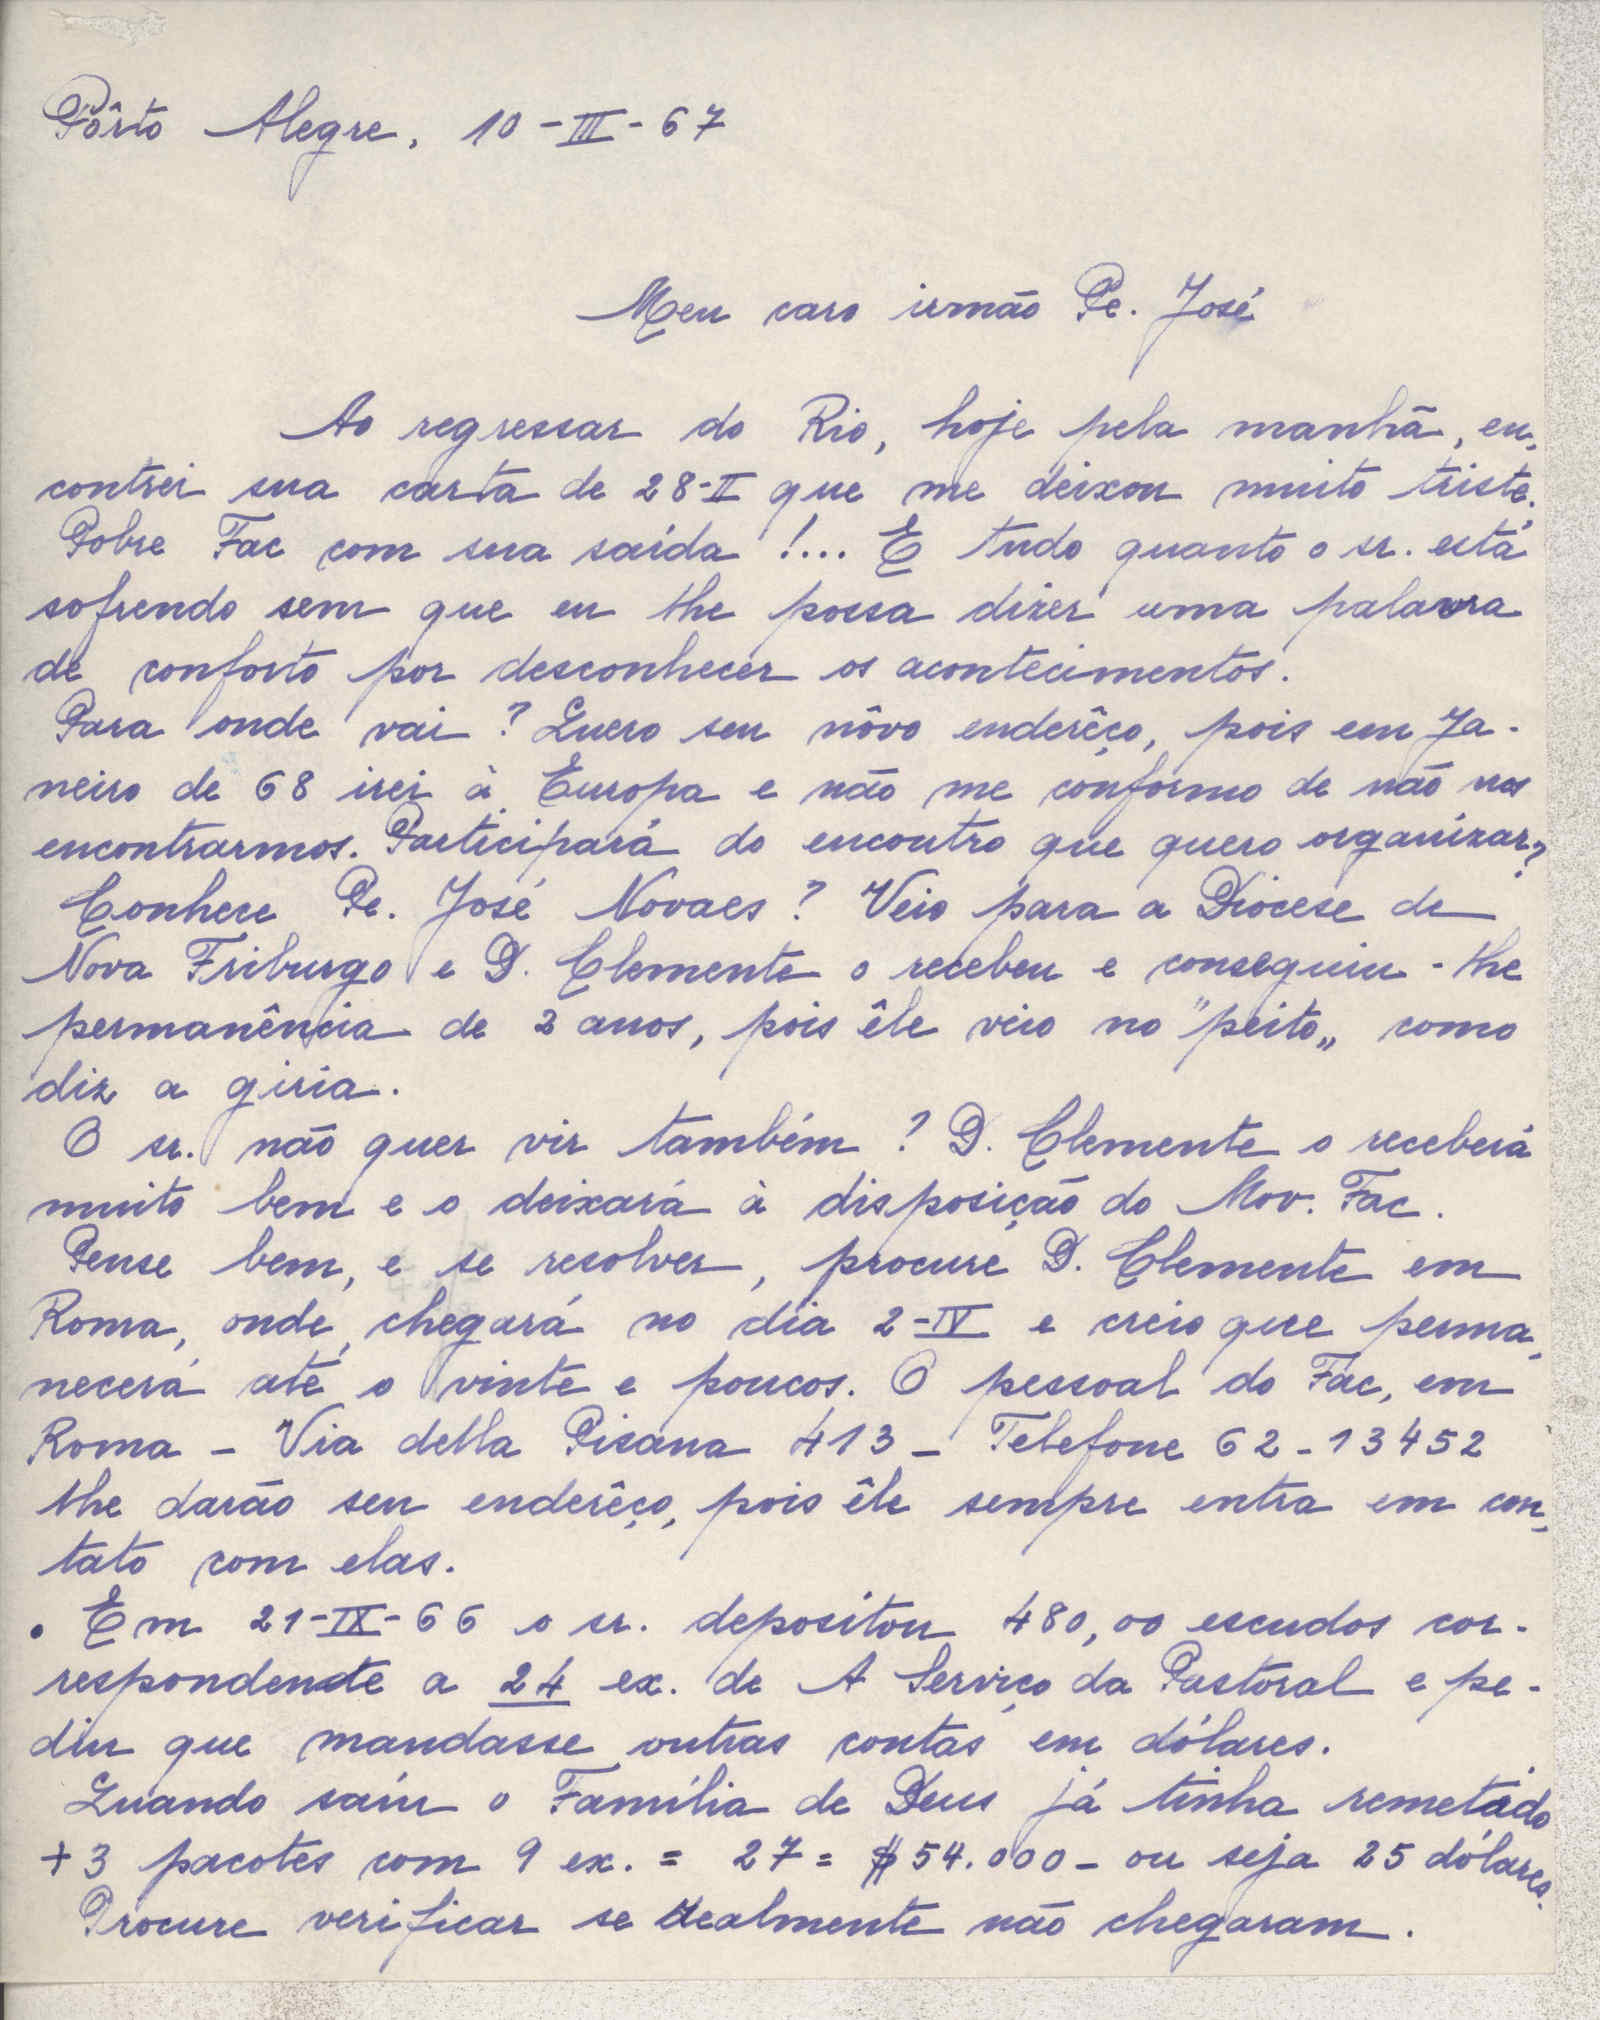 Pôrto Alegre, 10-III-67
Meu caro irmão Pe. José
Ao regressar do Rio, hoje pela manhã, en-
contrei sua carta de 28-II que me deixou muito triste.
Pobre Fac com sua saída!... E tudo quanto o sr. está
sofrendo sem que eu lhe possa dizer uma palavra
de conforto por desconhecer os acontecimentos.
Para onde vai? Quero seu nôvo enderêço, pois em Ja-
neiro de 68 irei à Europa e não me conformo de não nos
encontrarmos. Participará do encontro que quero organizar?
Conhece Pe. José Novaes? Veio para a Diocese de
Nova Friburgo e D. Clemente o recebeu e conseguiu-lhe
permanência de 2 anos, pois êle veio no "peito„ como
diz a giria.
O sr. não quer vir também? D. Clemente o receberá
muito bem e o deixará à disposição do Mov. Fac.
Pense bem, e se resolver, procure D. Clemente em
Roma, onde chegará no dia 2-IV e creio que perma-
necerá até o vinte e poucos. O pessoal do Fac, em
Roma - Via della Pisana 413 - Telefone 62-13452
lhe darão seu enderêço, pois êle sempre entra em con-
tato com elas.
• Em 21-IX-66 o sr. depositou 480,00 escudos cor-
respondente a 24 ex. de A Serviço da Pastoral e pe-
diu que mandasse outras contas em dólares.
Quando saíu o Família de Deus já tinha remetido
+ 3 pacotes com 9 ex. = 27 = $54.000 - ou seja 25 dólares.
Procure verificar se realmente não chegaram.